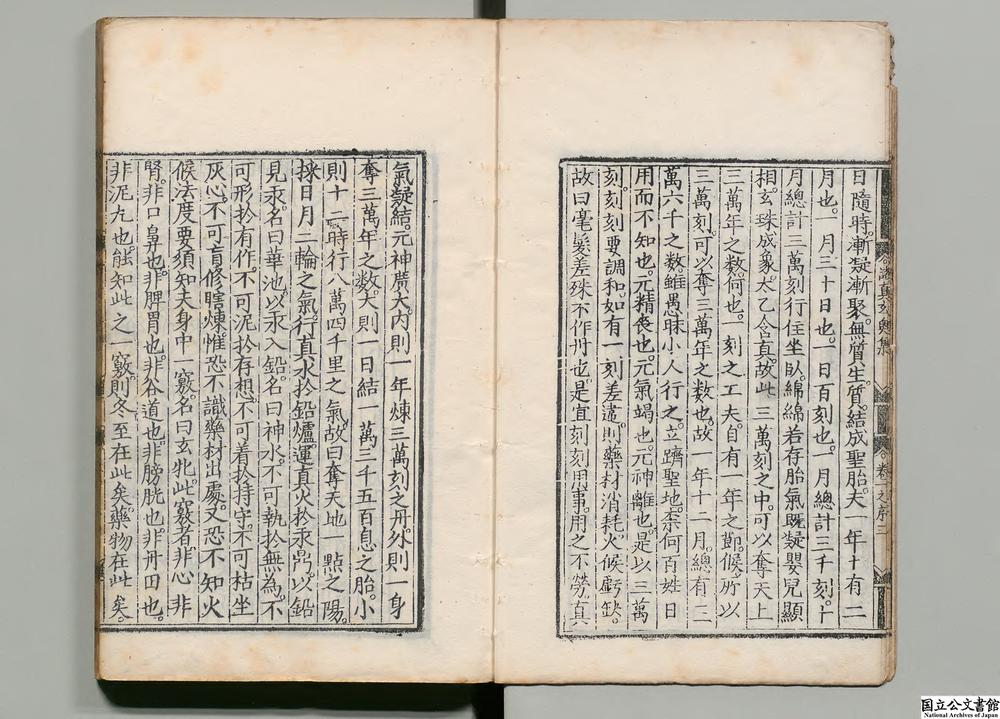 日隨時。漸凝漸聚。無質生質。結成聖胎。夫一年十有二
月也。一月三十日也。一日百刻也。一月總計三千刻。十
月總計三萬刻。行住坐臥。綿綿若存。胎氣旣凝。嬰兒顯
相。玄珠成象。太乙含真。故此三萬刻之中。可以奪天上
三萬年之數。何也。一刻之工夫。自有一年之節候。所以
三萬刻。可以奪三萬年之數也。故一年十二月。總有三
萬六千之數。雖愚昧小人行之。立躋聖地。柰何百姓日
用而不知也。元精喪也。元氣竭也。元神離也。是以三萬
刻。刻刻要調和。如有一刻差違。則藥材消耗。火候虧缺。
故曰毫髮差殊不作丹也。是宜刻刻用事。用之不勞。真
諸真玄奧集 卷二之序二
氣凝結。元神廣大。內則一年煉三萬刻之丹。外則一身
奪三萬年之數。大則一日結一萬三千五百息之胎。小
則十二時行八萬四千里之氣。故曰奪天地一點之陽。
採日月二輪之氣。行真水於鉛爐。運真火於汞鼎。以鉛
見汞。名曰華池。以汞入鉛。名曰神水。不可執於無為。不
可形於有作。不可泥於存想。不可着於持守。不可枯坐
灰心。不可盲修瞎煉。惟恐不識藥材出處。又恐不知火
候法度。要須知夫身中一竅。名曰玄牝。此竅者。非心非
腎。非口鼻也。非脾胃也。非谷道也。非膀胱也。非丹田也。
非泥丸也。能知此之一竅。則冬至在此矣。藥物在此矣。
国立公文書館
National Archives of Japan